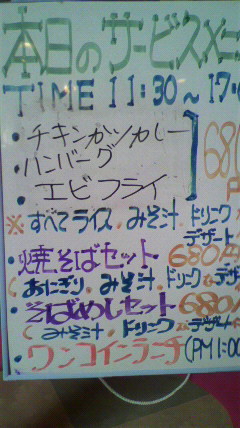 本日のサービスメニ
TIME 11:30~17:
・チキンカツカレー
・ハンバーグ 680
・エビフライ
※すべてライス・みそ汁・ドリンク
デザート
・焼そばセット 680
(おにぎり・みそ汁・ドリンク・デザ
・そばめしセット 680
(みそ汁・ドリンク デザート
・ワンコインランチ(PM1:00